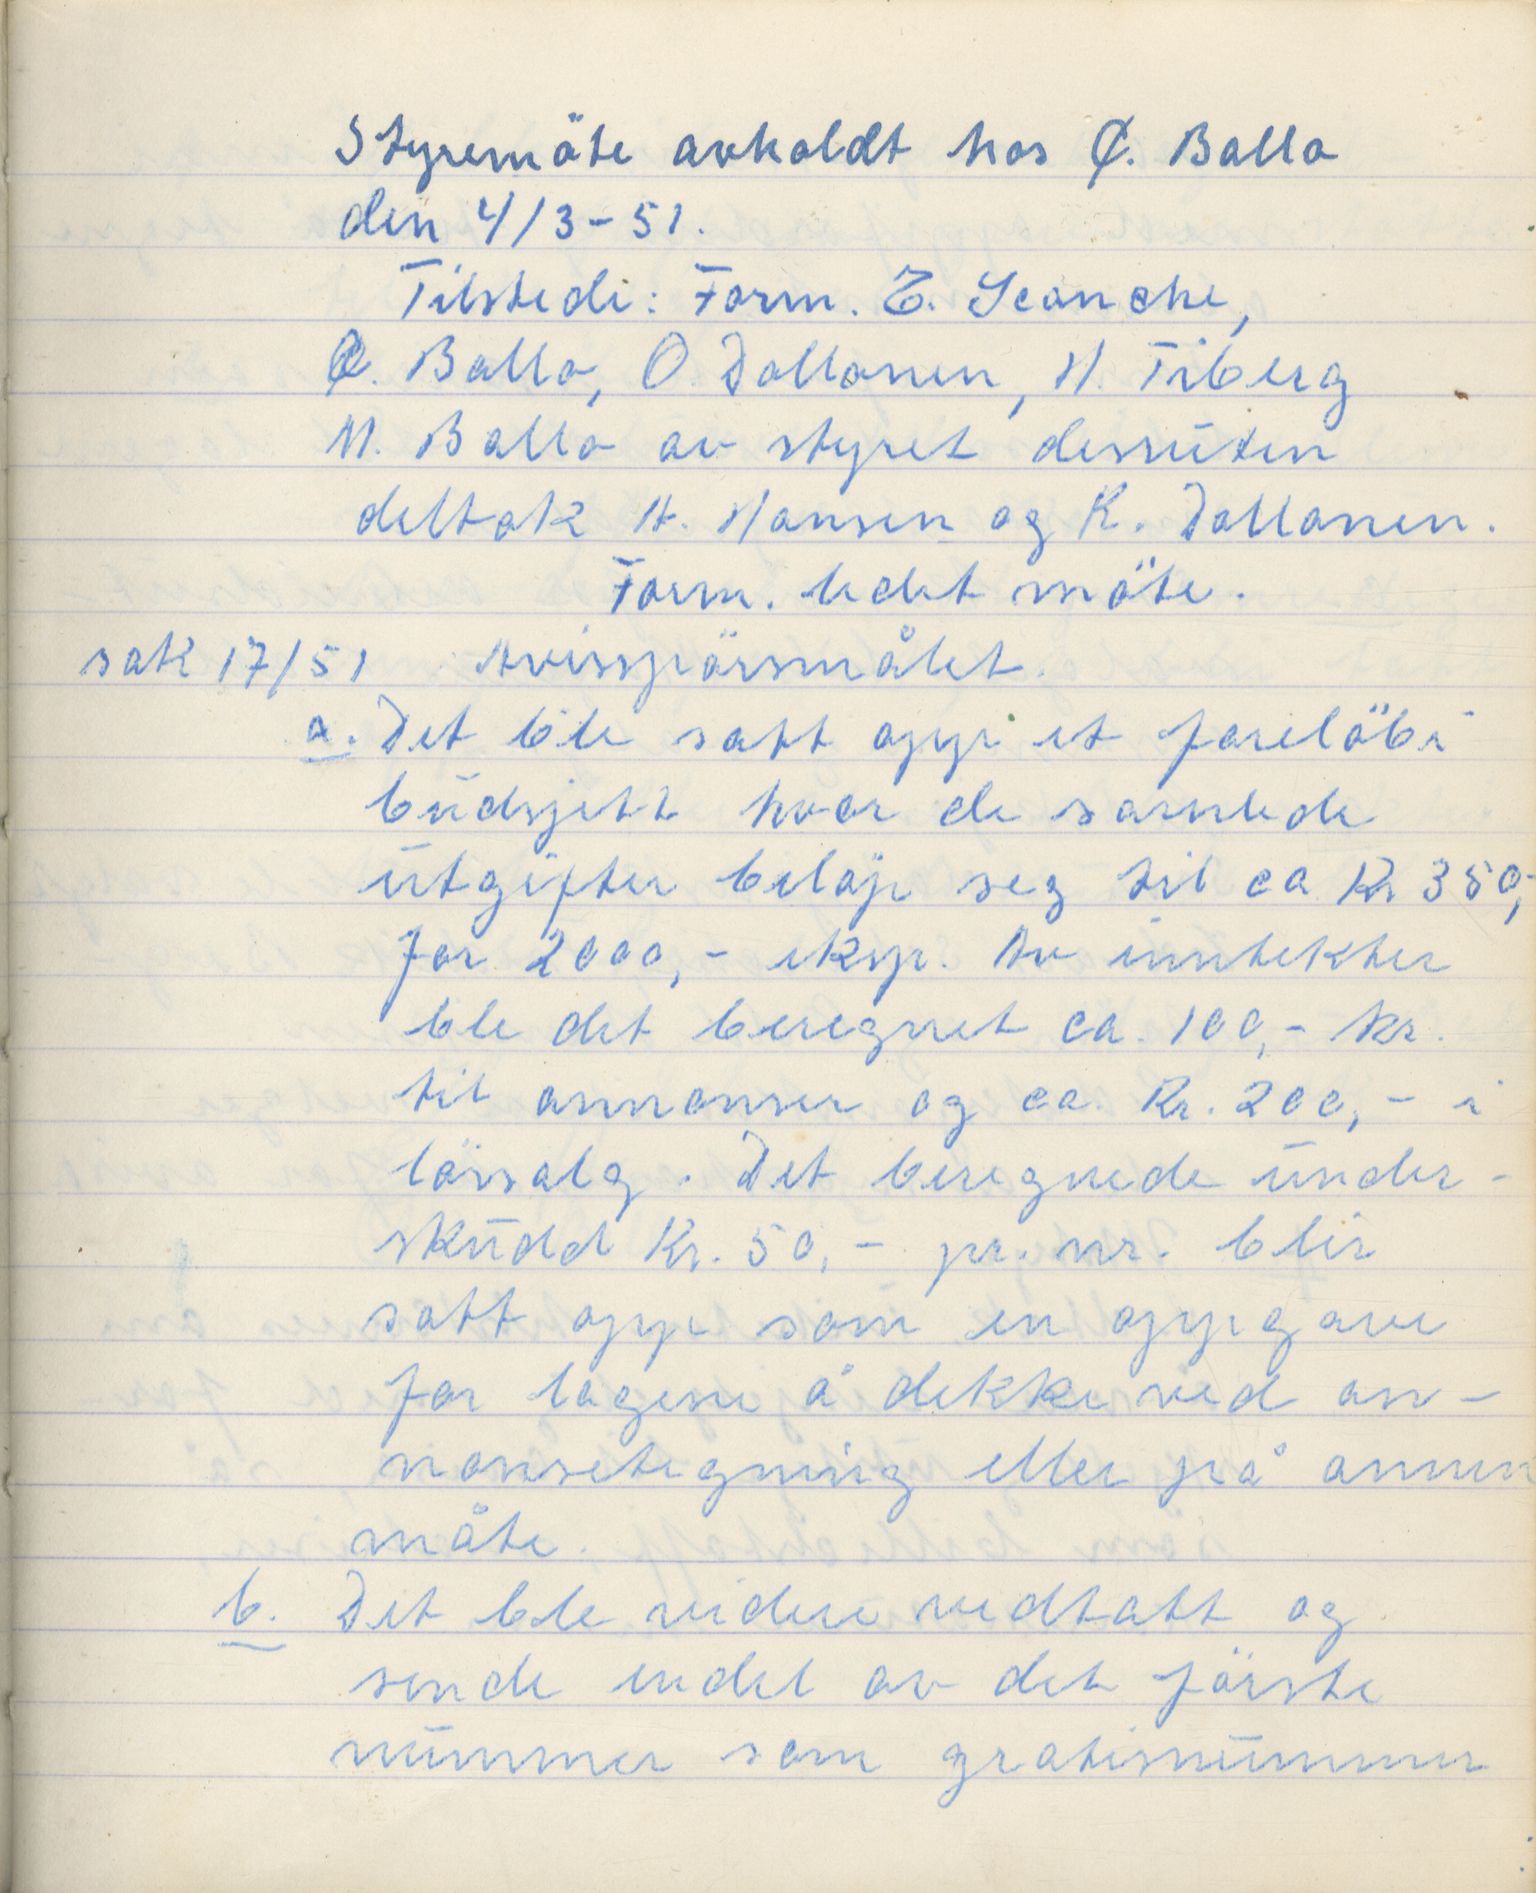 Styremöte avholdt hos Ø. Balla
den 4/3-51.
Tilstede: Form. E. Scanche,
Ø. Balla, O. Dallanen, H. Tiberg
M. Balla av styret dessuten
deltok H. Hansen og K. Dallanen.
Form. ledet möte.
sak 17/51 Avisspörsmålet.
a. Det ble satt opp et foreløbi
budsjett hvor de samlede
utgifter beløp seg til ca Kr 350,-
for 2000,- eksp. Av inntekter
ble det beregnet ca. 100,- kr.
til annonser og ca. Kr. 200,- i
lössalg. Det beregnede under-
skudd Kr. 50,- pr. nr. blir
satt opp som en oppgave
for lagene å dekke ved an-
nonsetegning eller på annen
måte.
b. Det ble videre vedtatt og
sende endel av det förste
nummer som gratisnummer